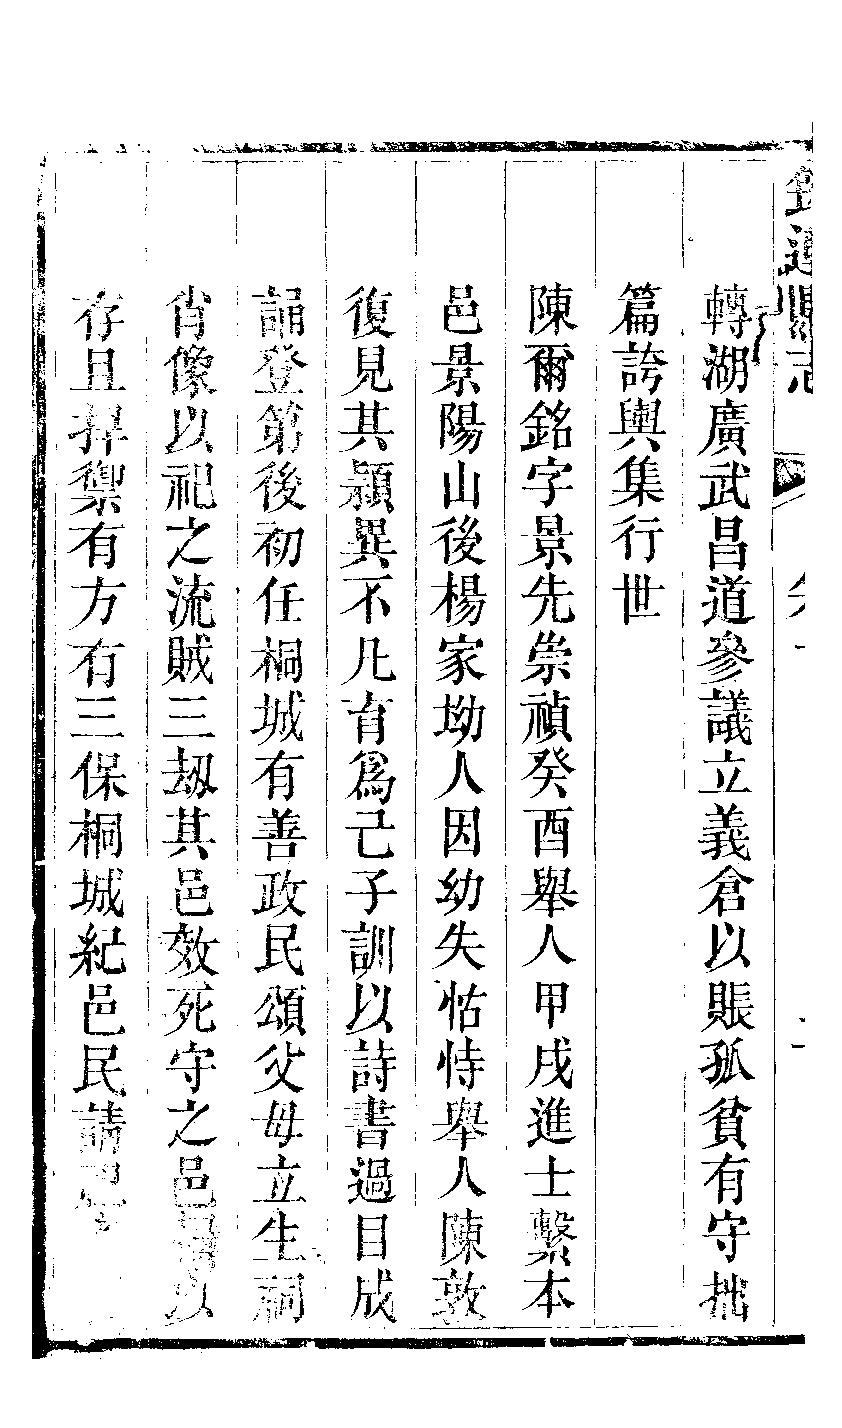 轉湖廣武昌道參議立義倉以賬孤貧有守拙
篇誇輿集行世
陳爾銘字景先崇禎癸酉舉人甲戌進士繫本
邑景陽山後楊家坳人因幼失怙恃舉人陳敦
復見其穎異不凡育爲己子訓以詩書過目成
誦登第後初任桐城有善政民頌父母立生祠
肖像以祀之流賊三刼其邑效死守之邑賴以
存且捍禦有方有三保桐城紀邑民請
縣志